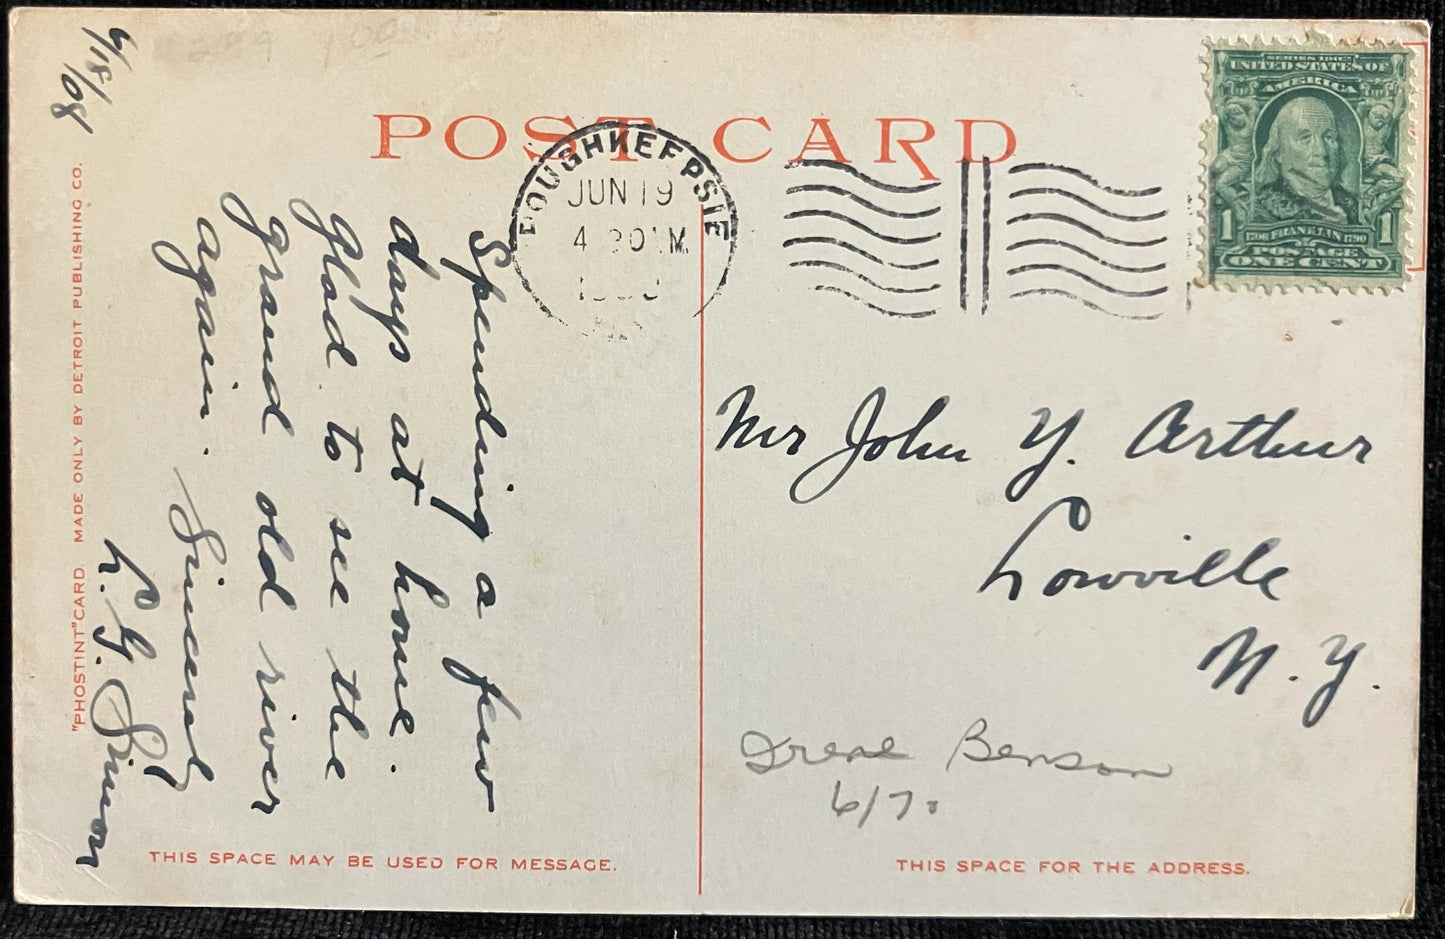 6/18/08
POST CARD
POUGHKEEPSIE
JUN 19
4
SERIES 1902
UNITED STATES OF
AMERICA
1 1
FRANKLIN
POSTAGE
ONE CENT
Spending a few
days at home.
Glad to see the
grand old river
again. Sincerely
L. G. Simon
Mr John Y. Arthur
Lowville
N. Y.
Irene Benson
6/7
"PHOSTINT" CARD MADE ONLY BY DETROIT PUBLISHING CO.
THIS SPACE MAY BE USED FOR MESSAGE.
THIS SPACE FOR THE ADDRESS.